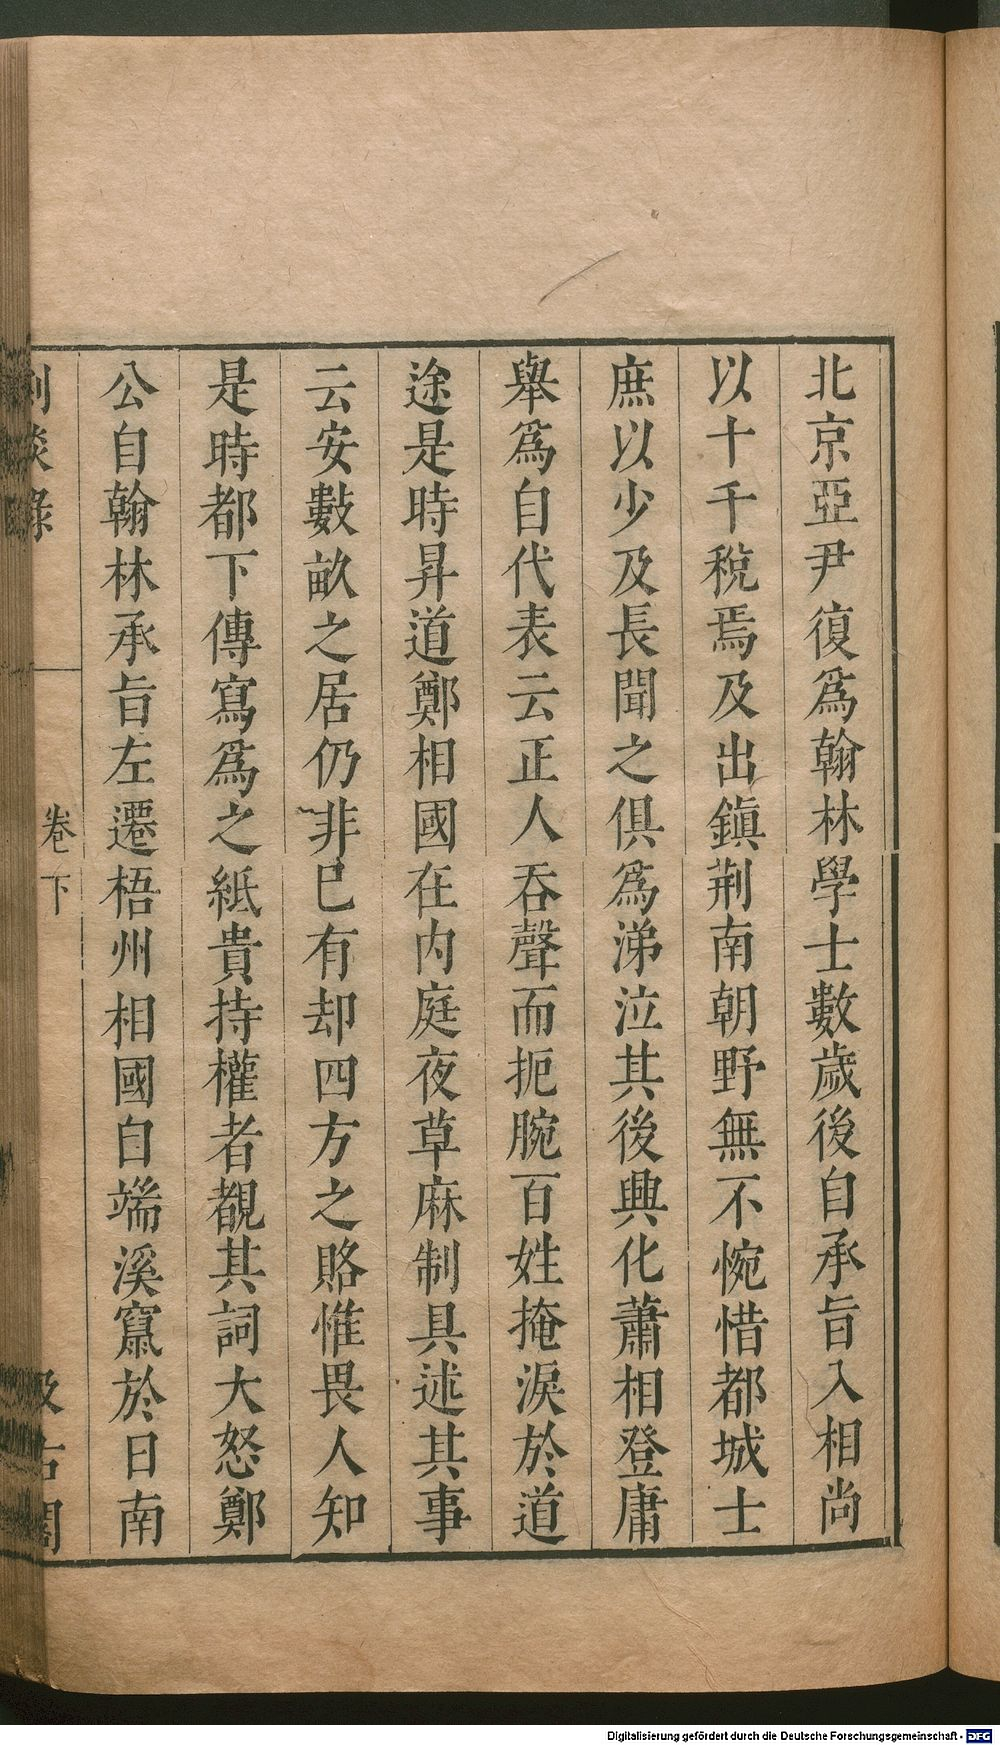 北京亞尹復爲翰林學士數歲後自承旨入相尚
以十千稅焉及出鎭荆南朝野無不惋惜都城士
庶以少及長聞之俱爲涕泣其後興化蕭相登庸
舉爲自代表云正人吞聲而扼腕百姓掩淚於道
途是時昇道鄭相國在内庭夜草麻制具述其事
云安數畝之居仍非巳有却四方之賂惟畏人知
是時都下傳寫爲之紙貴持權者覩其詞大怒鄭
公自翰林承旨左遷梧州相國自端溪竄於日南
劇談錄
卷下
汲古閣
Digitalisierung gefördert durch die Deutsche Forschungsgemeinschaft - DFG